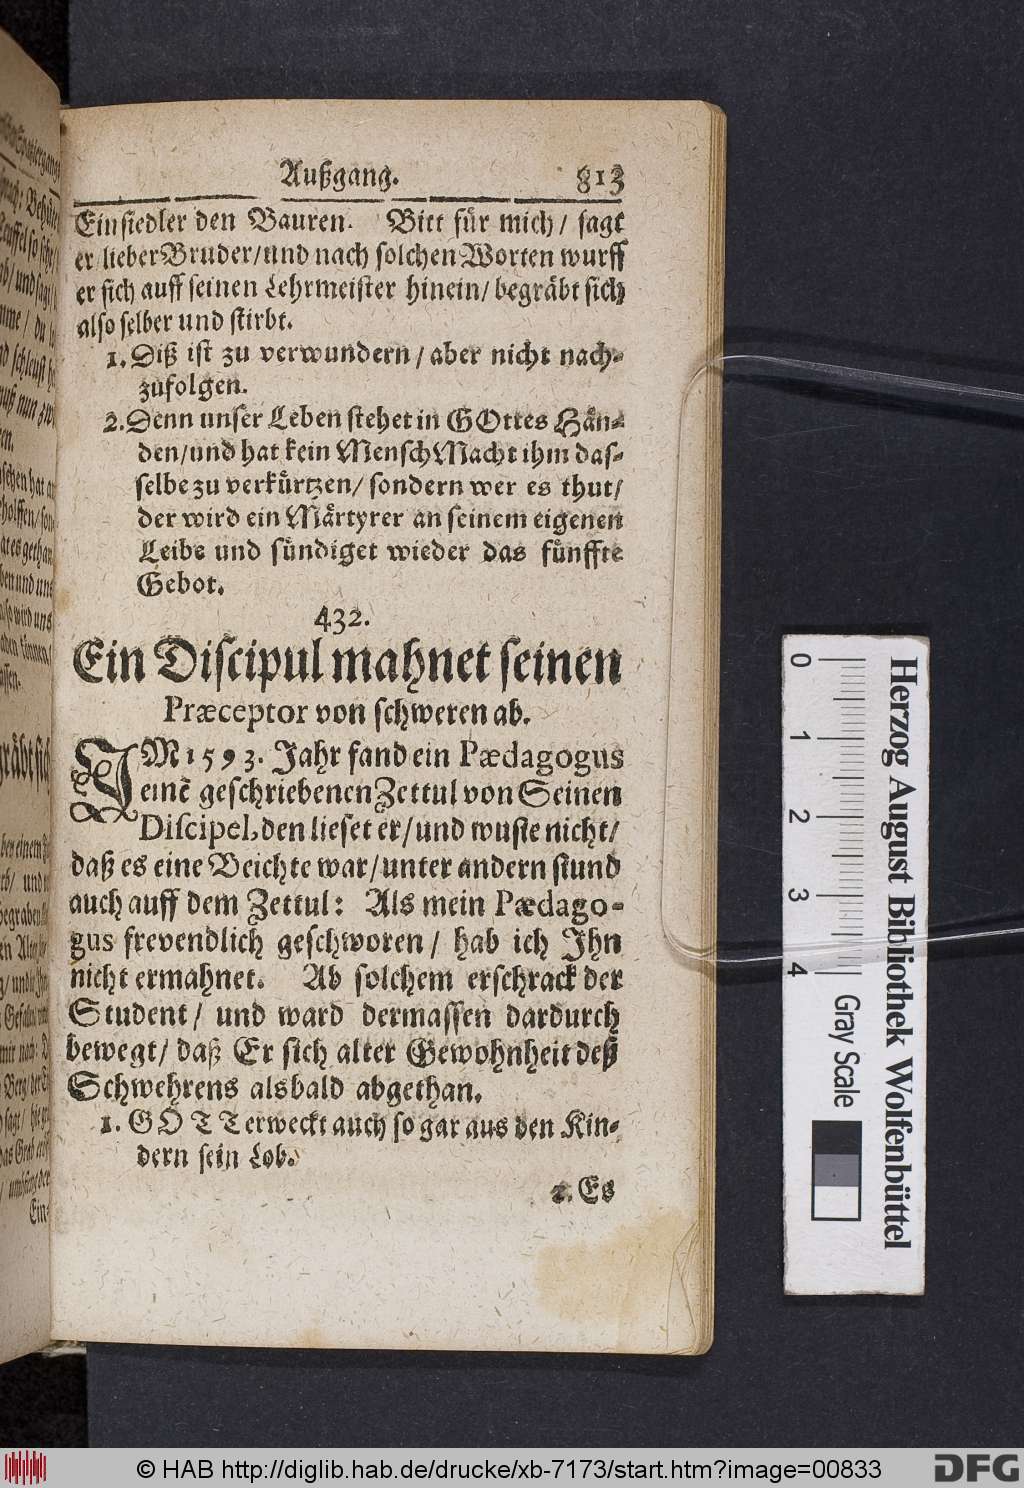 Außgang. 813
Einsiedler den Bauren. Bitt für mich / sagt
er / lieber Bruder / und nach solchen Worten wurff
er sich auff seinen Lehrmeister hinein / begräbt sich
also selber und stirbt.
1. Diß ist zu verwundern / aber nicht nach-
zufolgen.
2. Denn unser Leben stehet in GOttes Hän-
den / und hat kein Mensch Macht ihm das-
selbe zu verkürtzen / sondern wer es thut /
der wird ein Märtyrer an seinem eigenen
Leibe und sündiget wieder das fünffte
Gebot.
432.
Ein Discipul mahnet seinen
Præceptor von schweren ab.
IM 1593. Jahr fand ein Pædagogus
einē geschriebenen Zettul von Seinen
Discipel, den lieset er / und wuste nicht /
daß es eine Beichte war / unter andern stund
auch auff dem Zettul: Als mein Pædago-
gus frevendlich geschworen / hab ich Ihn
nicht ermahnet. Ab solchem erschrack der
Student / und ward dermassen dardurch
bewegt / daß Er sich alter Gewohnheit deß
Schwehrens alsbald abgethan.
1. GOTT erweckt auch so gar aus den Kin-
dern sein Lob.
2. Es
Herzog August Bibliothek Wolfenbüttel
0 1 2 3 4 Gray Scale
© HAB http://diglib.hab.de/drucke/xb-7173/start.htm?image=00833
DFG